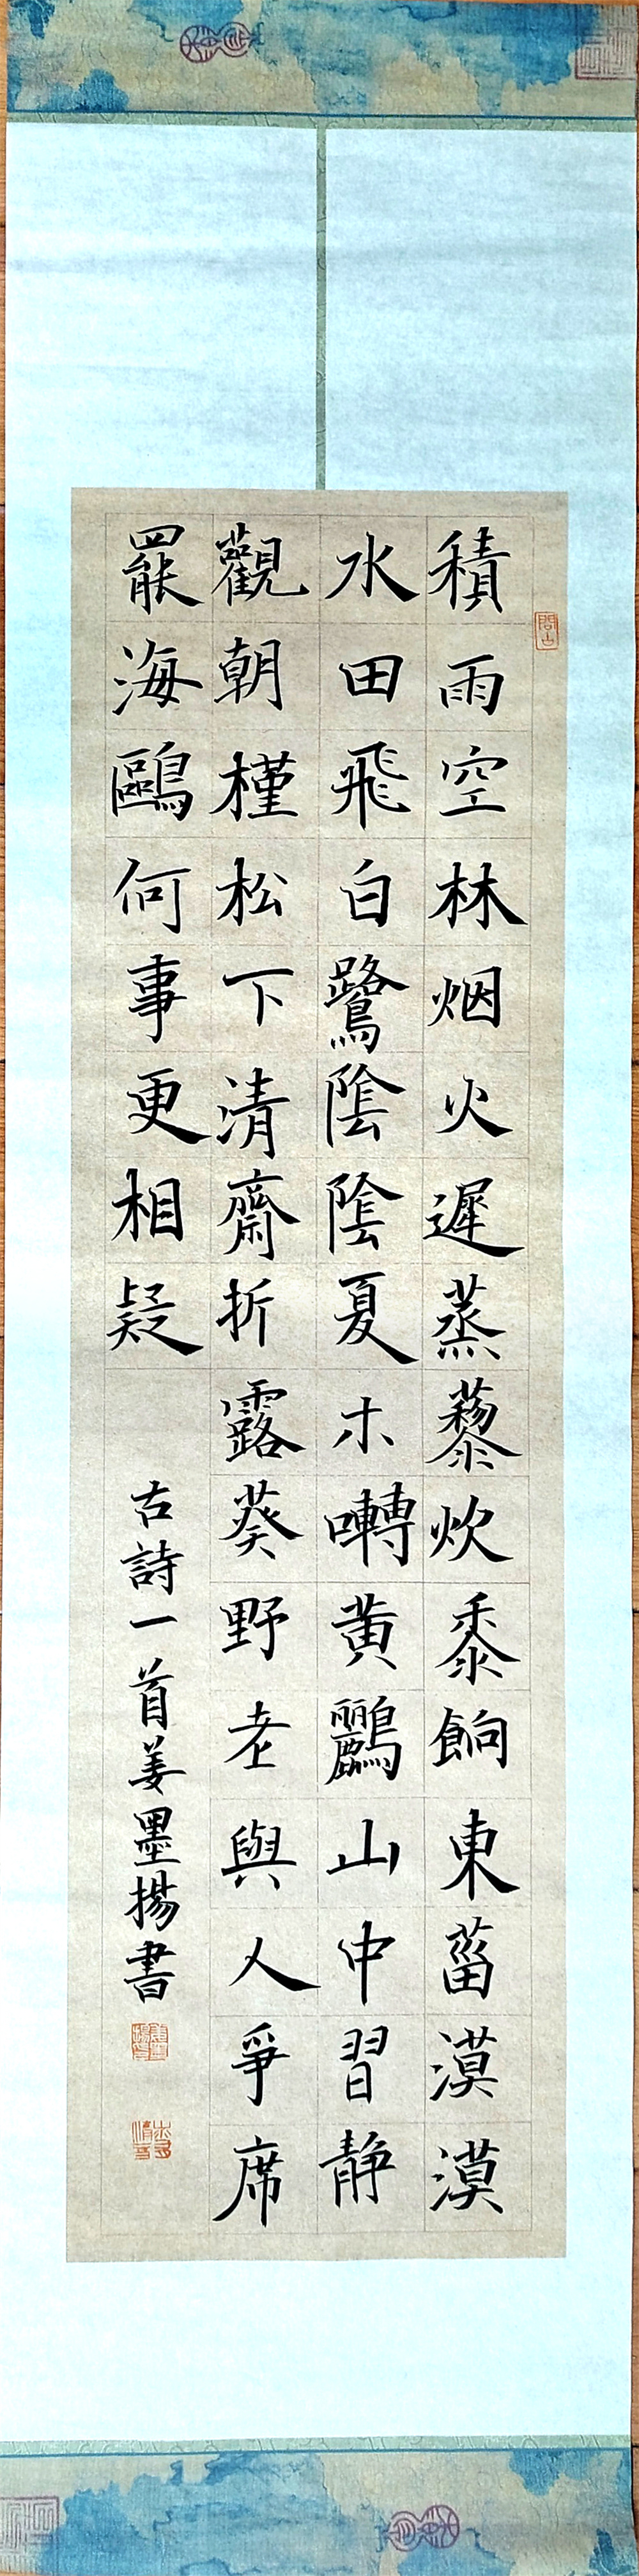 積雨空林烟火遲蒸藜炊黍餉東菑漠漠
水田飛白鷺陰陰夏木囀黃鸝山中習静
觀朝槿松下清齋折露葵野老與人爭席
罷海鷗何事更相疑
古詩一首姜墨揚書
問古